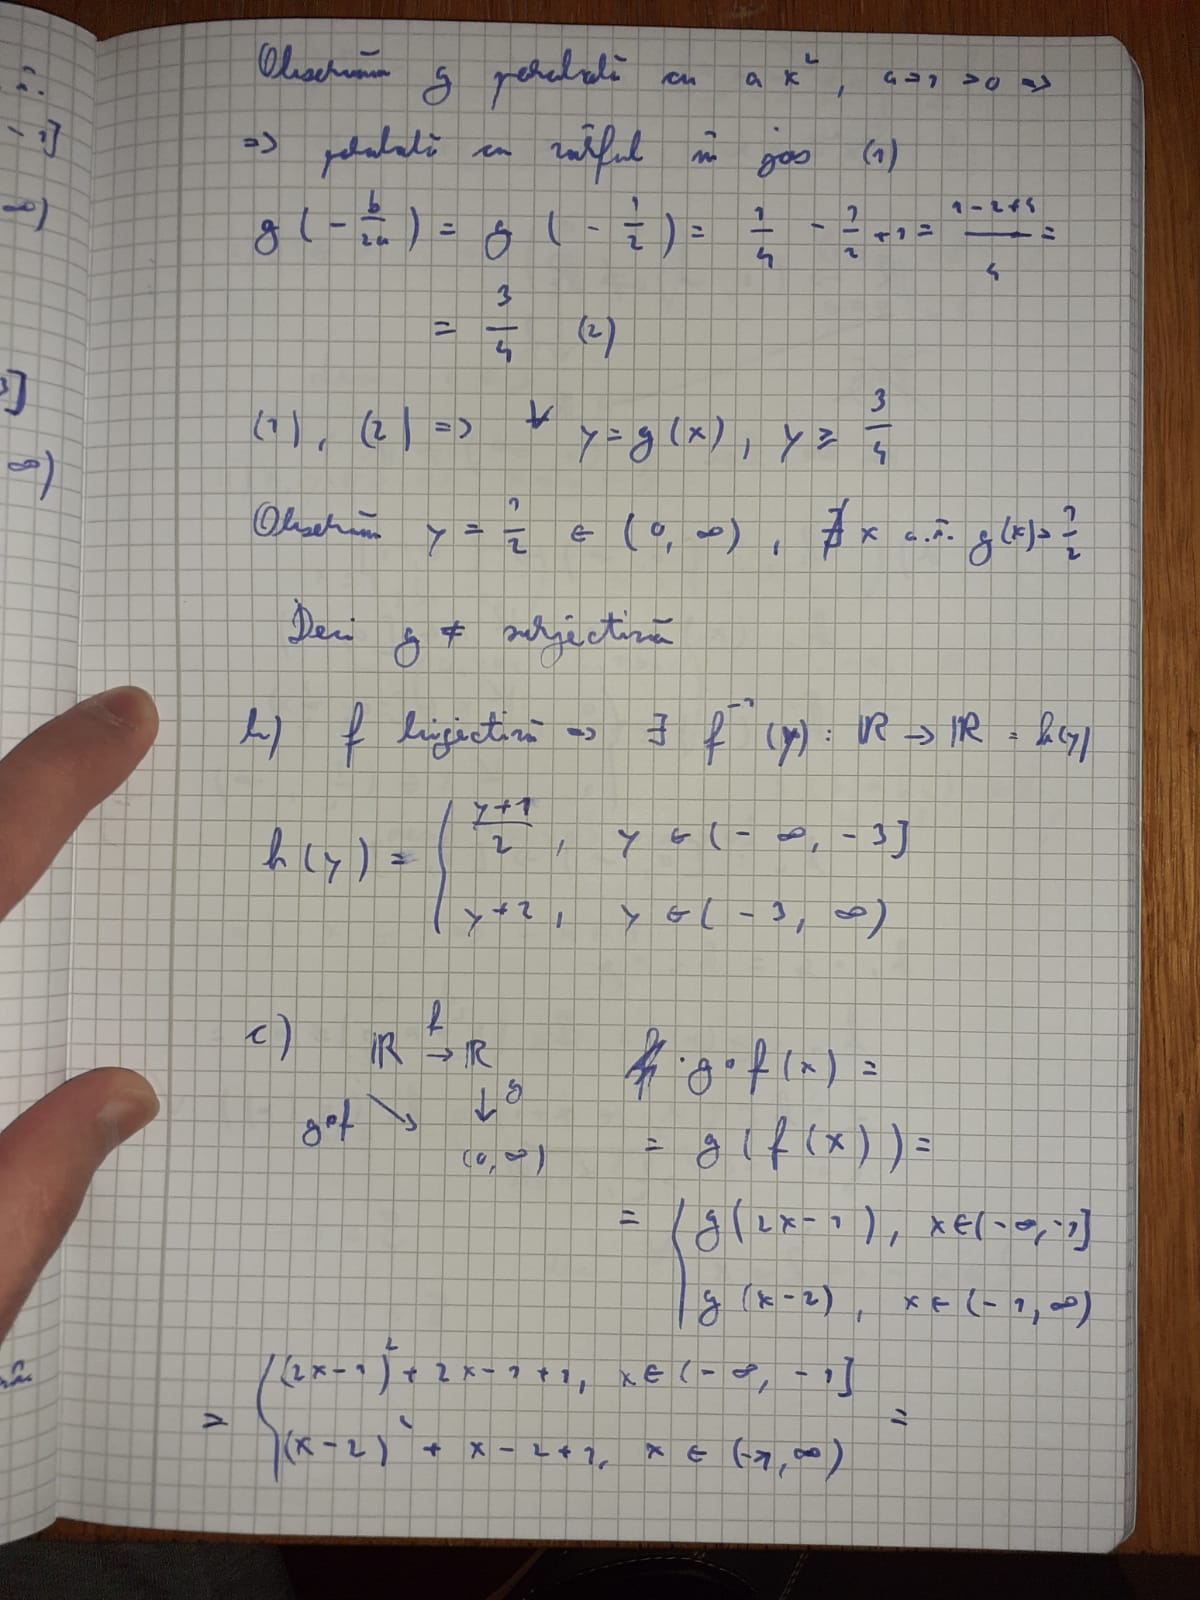 Observăm g parabolă cu a x², a = 1 > 0 =>
=> parabolă cu vârful în jos (1)
g(-b/2a) = g(-1/2) = 1/4 - 1/2 + 1 = (1-2+4)/4 =
= 3/4 (2)
(1), (2) => ∀ y = g(x), y ≥ 3/4
Observăm y = 1/2 ∈ (0, ∞), ∄ x a.î. g(x) = 1/2
Deci g ≠ surjectivă
b) f bijectivă => ∃ f⁻¹(y): ℝ → ℝ = h(y)
h(y) = { (y+1)/2, y ∈ (-∞, -3]
y+2, y ∈ (-3, ∞)
c) ℝ →f ℝ
g∘f ↘ ↓ g
(0, ∞)
g∘f(x) =
= g(f(x)) =
= { g(2x-1), x ∈ (-∞, -1]
g(x-2), x ∈ (-1, ∞)
= { (2x-1)² + 2x-1+1, x ∈ (-∞, -1]
(x-2)² + x-2+1, x ∈ (-1, ∞) =
n.
-1]
∞)
3]
∞)